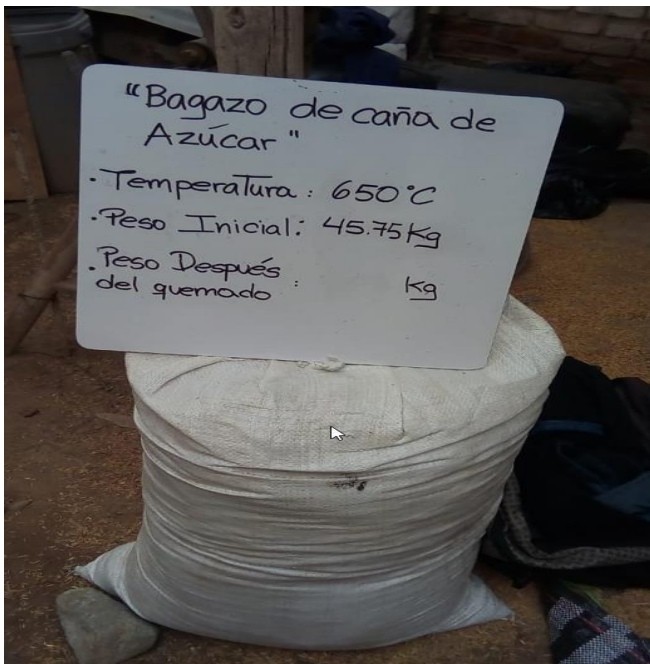 "Bagazo de caña de
Azúcar"
·Temperatura: 650°C
·Peso Inicial: 45.75Kg
·Peso Después
del quemado : Kg